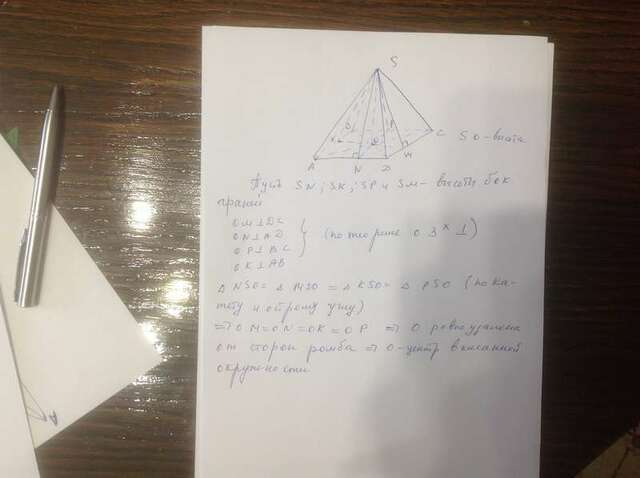 S
A
N
D
M
C
SO - высота
Пусть SN; SK; SP и SM - высоты бок
граней
OM⊥DC
ON⊥AD
OP⊥BC
OK⊥AB
(по теореме о 3х ⊥)
△NSO = △MSO = △KSO = △PSO (по ка-
тету и острому углу)
⇒ OM=ON=OK=OP ⇒ O равноудалена
от сторон ромба ⇒ O-центр вписанной
окружности